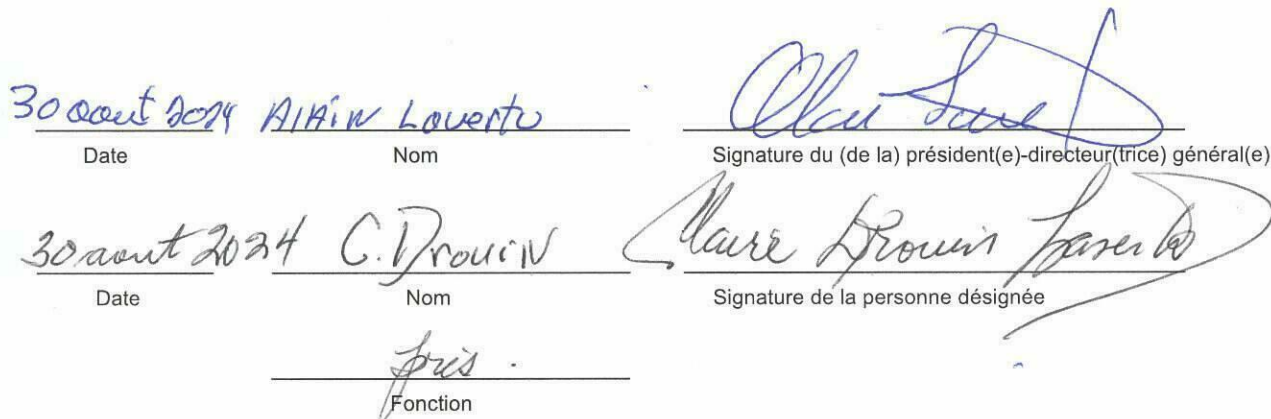 30 aout 2024 Alain Laverto
Date Nom Signature du (de la) président(e)-directeur(trice) général(e)
30 aout 2024 C. Drouin Claire Drouin
Date Nom Signature de la personne désignée
Fonction